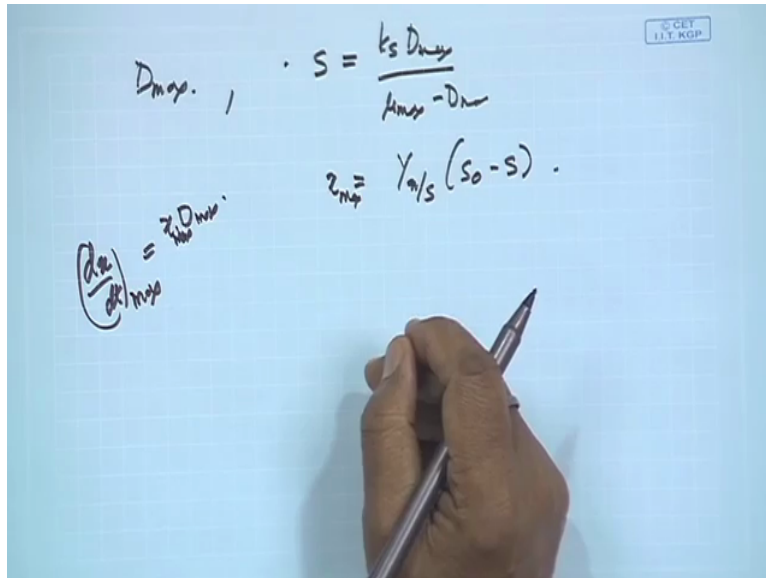 © CET
I.I.T. KGP
Dmax. , · S = ks Dmax / μmax - Dmax
xmax = Yx/s (S0 - S) .
(dx/dt)max = xmax Dmax.